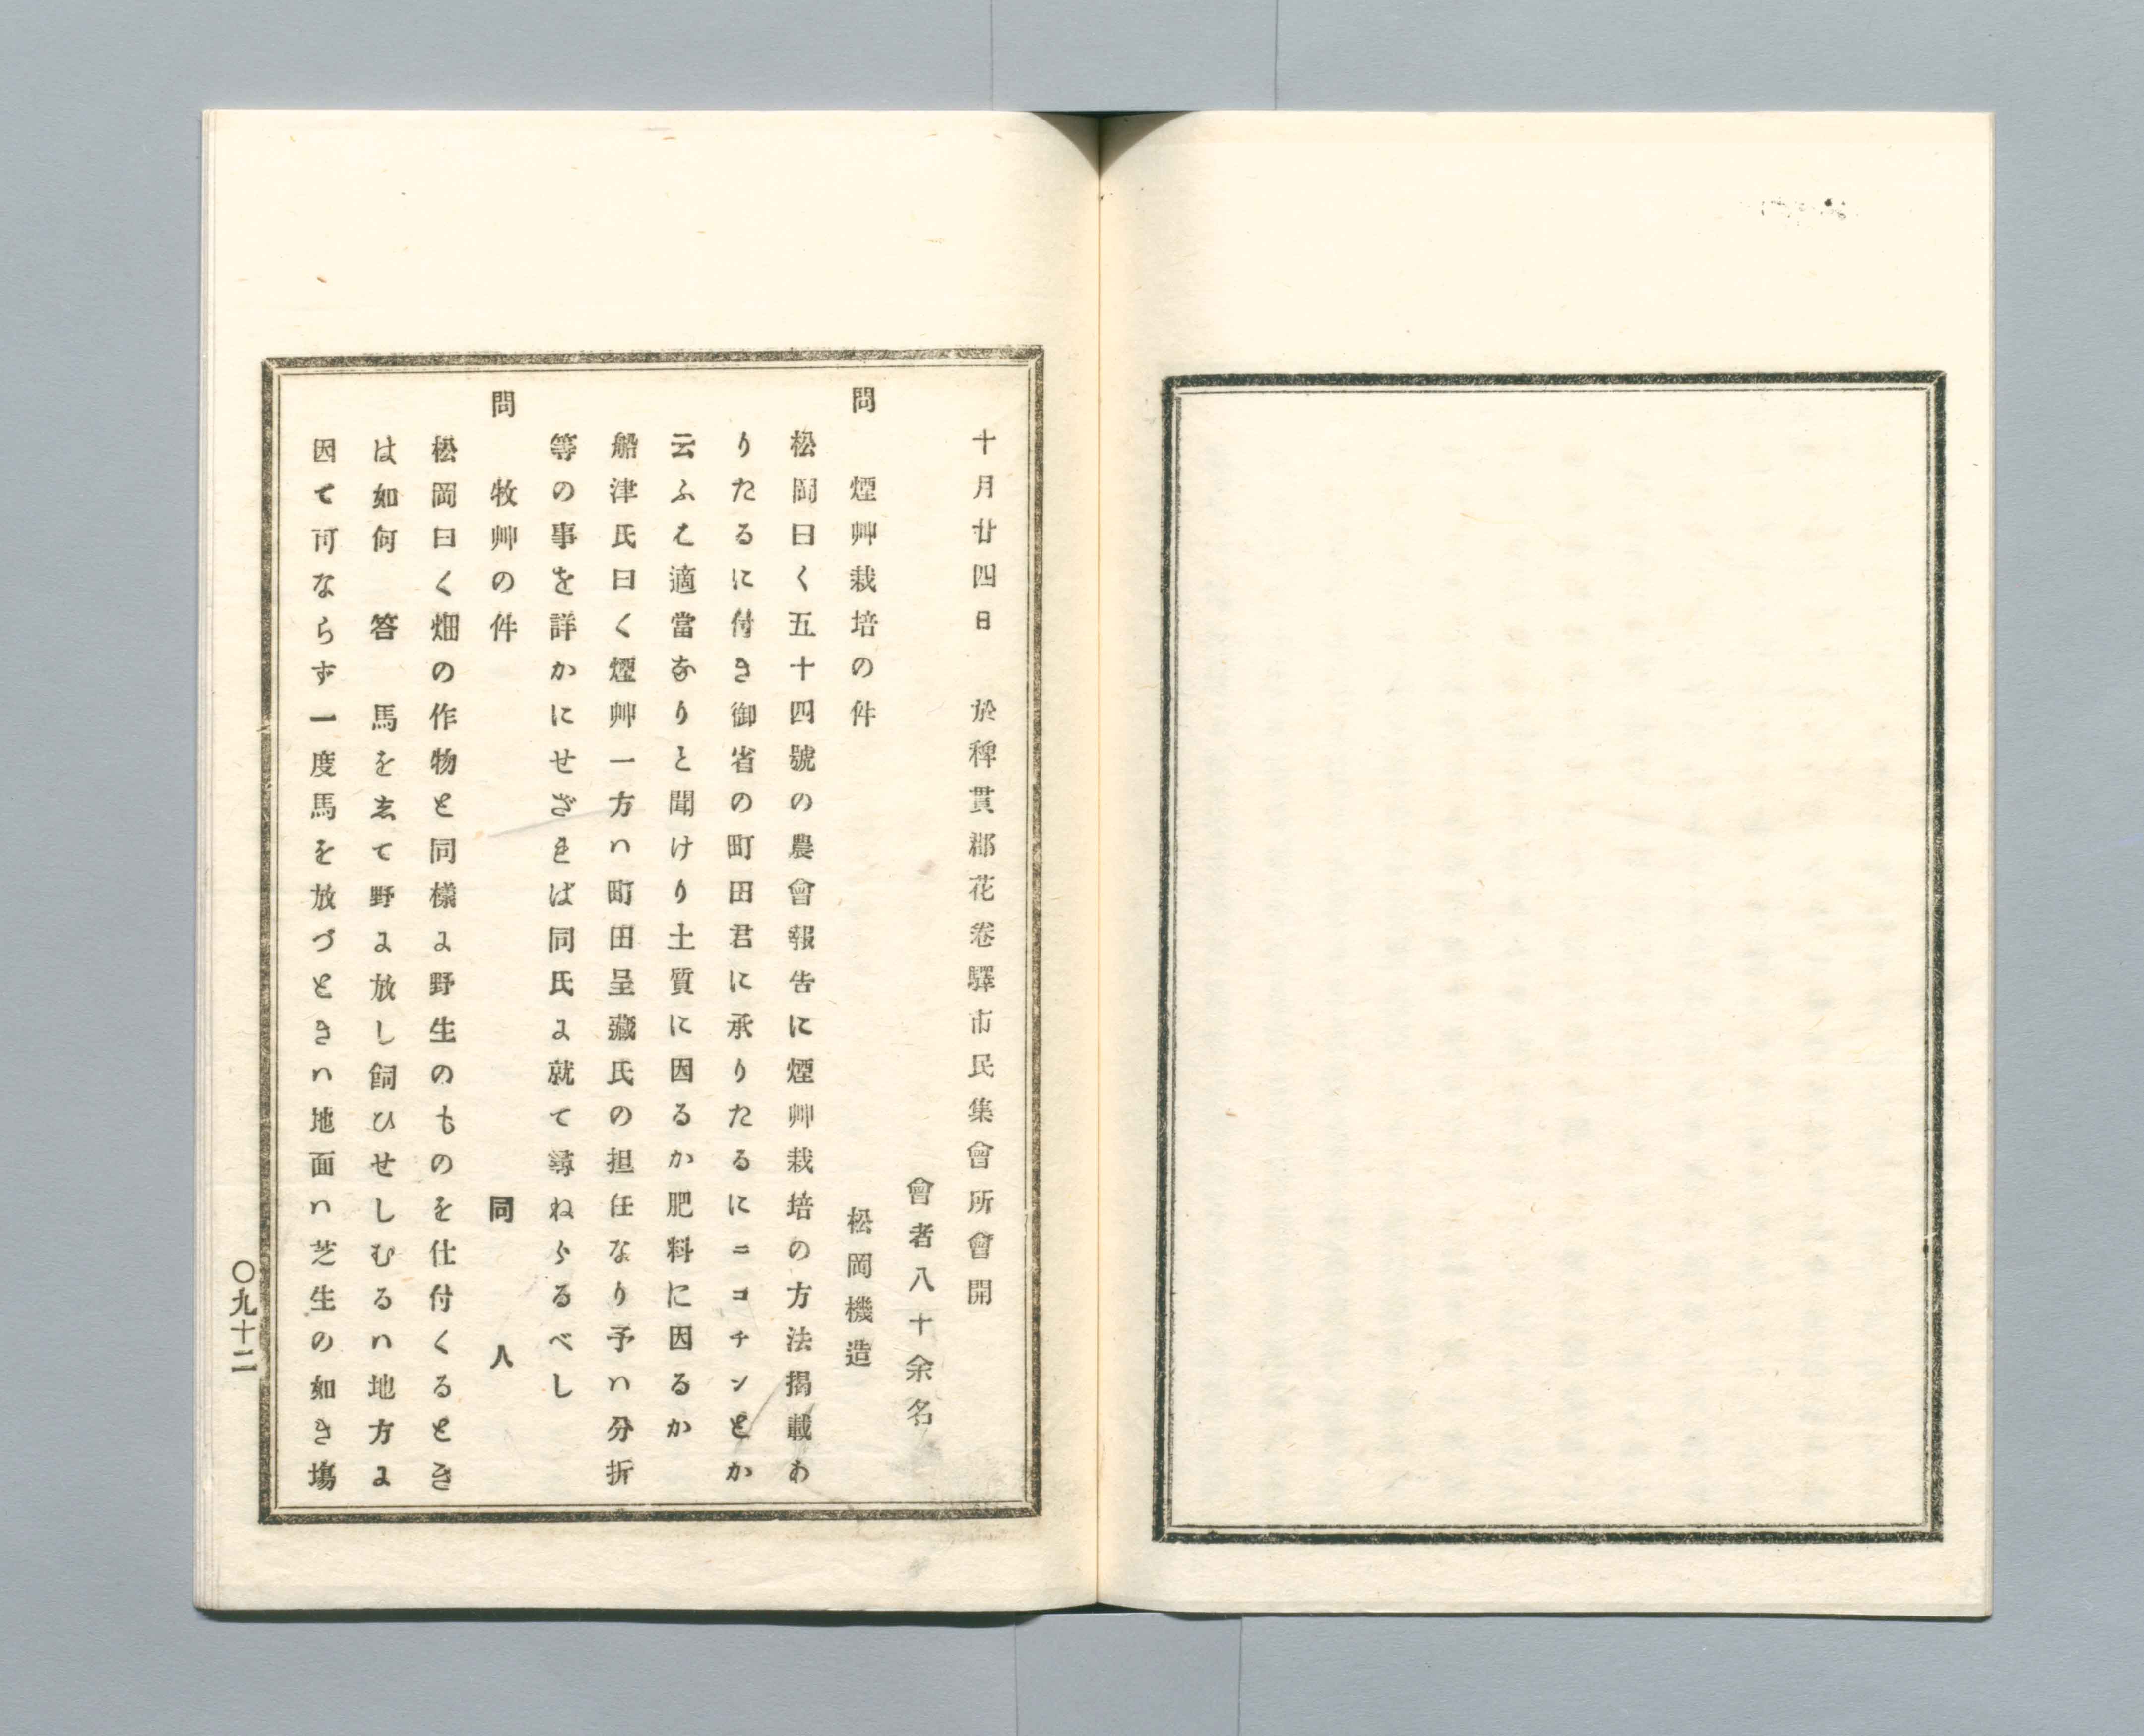 十月廿四日　於稗貫郡花卷驛市民集會所會開
會者八十余名
問　煙艸栽培の件　松岡機造
松岡曰く五十四號の農會報告に煙艸栽培の方法揭載あ
りたるに付き御省の町田君に承りたるにニコチンとか
云ふは適當なりと聞けり土質に因るか肥料に因るか
船津氏曰く煙艸一方ハ町田呈藏氏の担任なり予ハ分折
等の事を詳かにせざれば同氏に就て尋ねらるべし
問　牧艸の件　同人
松岡曰く畑の作物と同樣に野生のものを仕付くるとき
は如何　答　馬をゑて野に放し飼ひせしむるハ地方に
因て可ならず一度馬を放づときハ地面ハ芝生の如き塲
〇九十二